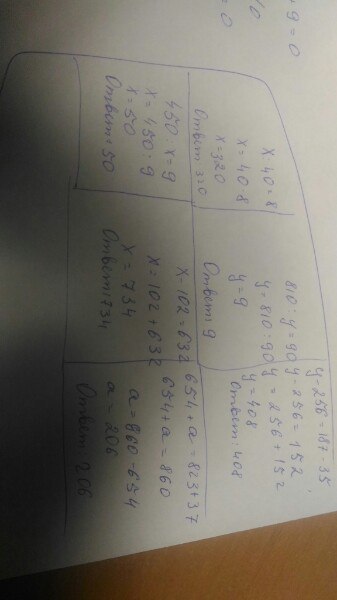 + 9 = 0
% 
= 0
x 40 = 8
x = 40 · 8
x = 320
Ответ: 320
810 : y = 90
y = 810 : 90
y = 9
Ответ 9
y - 256 = 187 - 35
y - 256 = 152
y = 256 + 152
y = 408
Ответ: 408
450 : x = 9
x = 450 : 9
x = 50
Ответ: 50
x - 102 = 632
x = 102 + 632
x = 734
Ответ: 734
654 + a = 823 + 37
654 + a = 860
a = 860 - 654
a = 206
Ответ 206